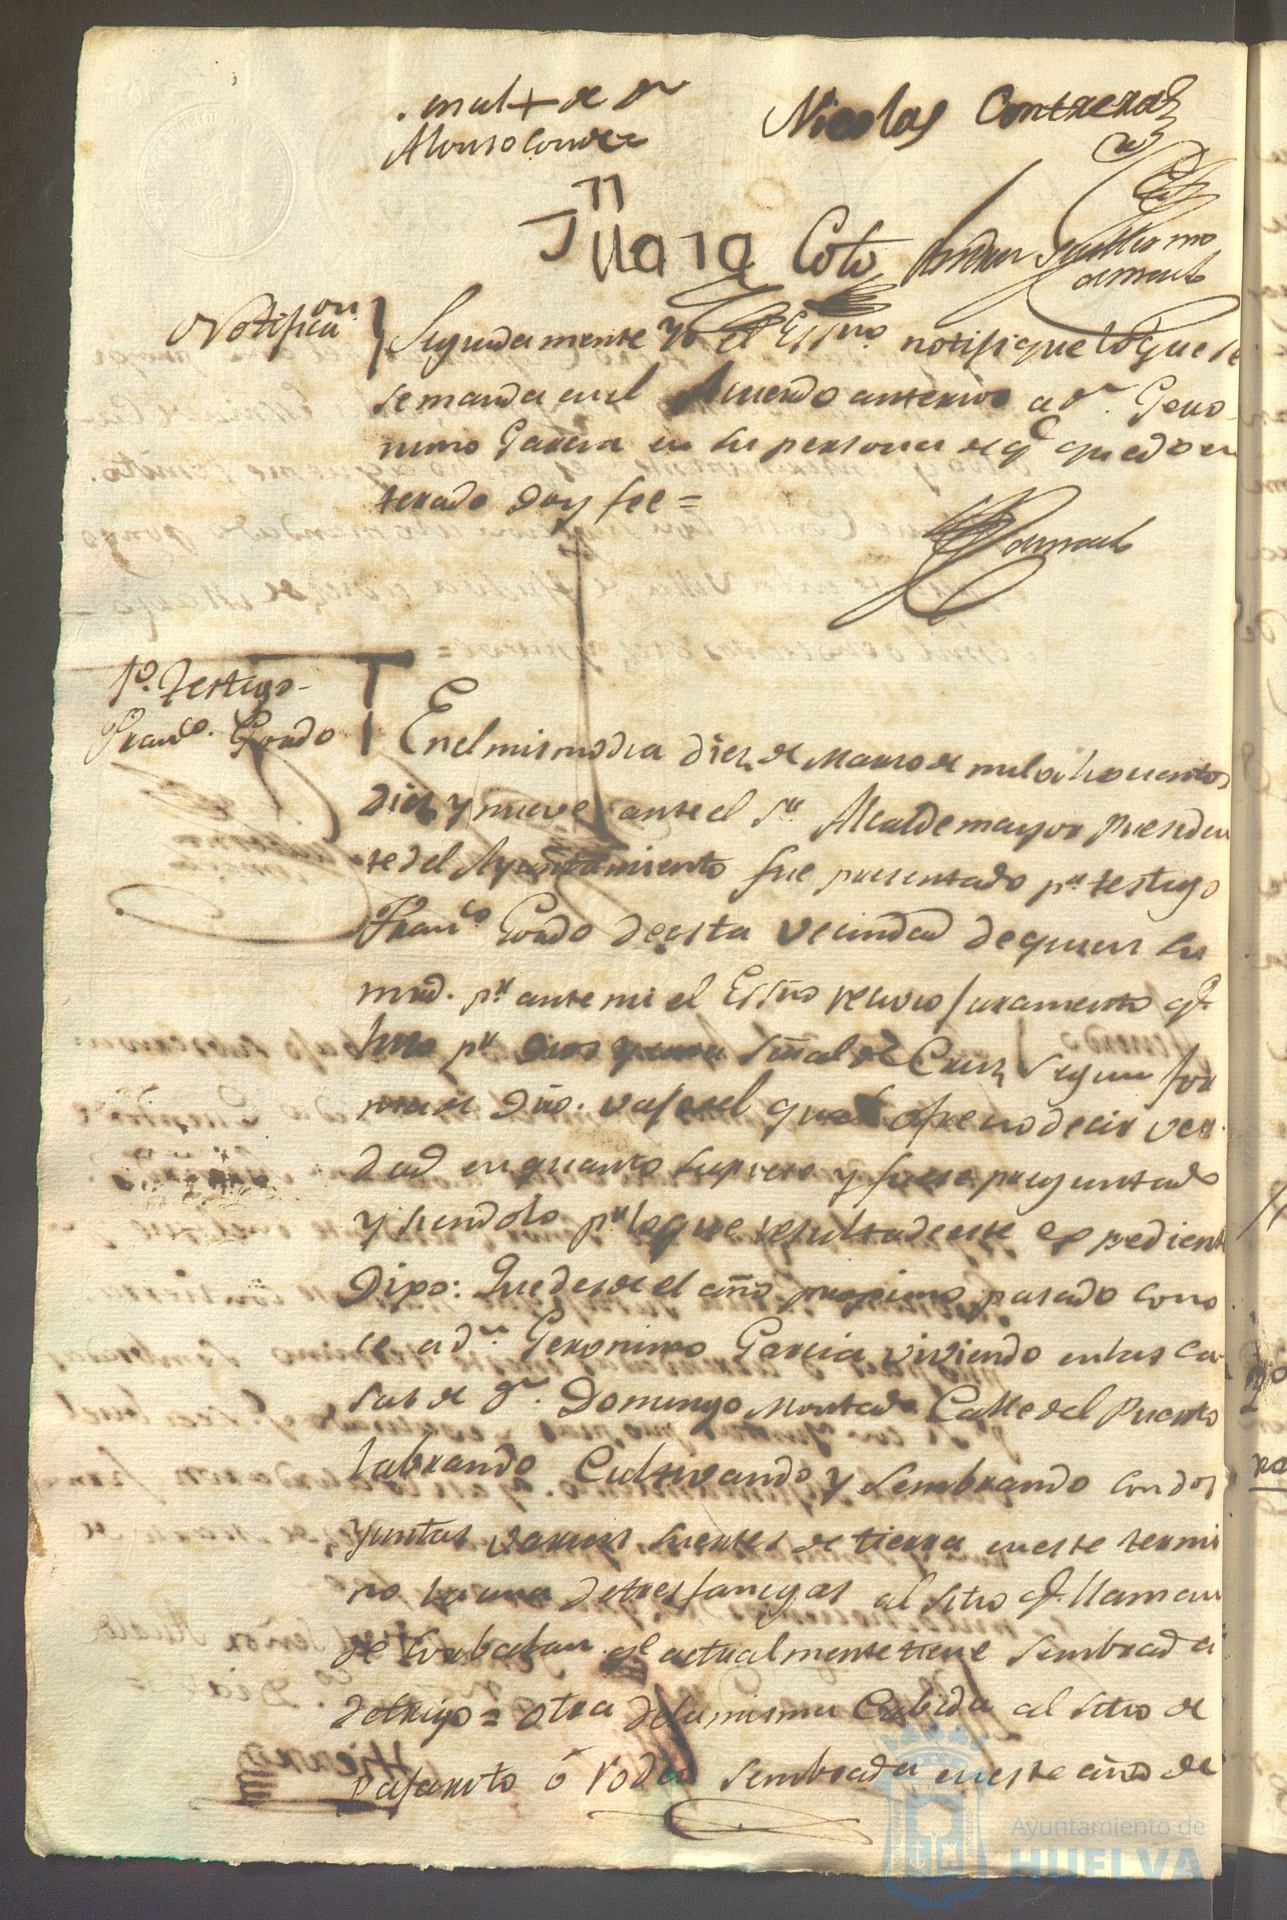 .mal + de Dn
Alonso Conde
Nicolas Contreras
Juara Coto
Notificaon
Seguidamente Yo el Essno. notifique lo que se
se manda en el Acuerdo anterior a Dn. Gero
nimo Garcia en su persona de qe quedo en
terado doy fee =
1o. Testigo
Franco. Gordo
En el mismo dia diez de Marzo de mil ochocientos
diez y nueve ante el Sr. Alcalde mayor presiden
te del Ayuntamiento fue presentado pr testigo
Franco Gordo de esta vecindad de quien su
mrd. pr ante mi el Essno recivio juramento qe.
hizo pr Dios y una Señal de Cruz segun for
ma de Dro. vajo el qual ofrecio decir ver
dad en quanto supiere y fuere preguntado
y siendolo pr lo que resulta de este expediente
Dixo: Que desde el año proximo pasado cono
ce a dn. Geronimo Garcia viviendo en las ca
sas de Dn. Domingo Montado Calle del Puerto
labrando Cultivando y sembrando con dos
yuntas varias suertes de tierra en este termi
no la una de tres fanegas al sitio qe. llaman
de actualmente tiene sembrada
de trigo = otra de la misma Cabida al sitio de
Pajarito ó Rodeo sembrada en este año de
Ayuntamiento de
HUELVA